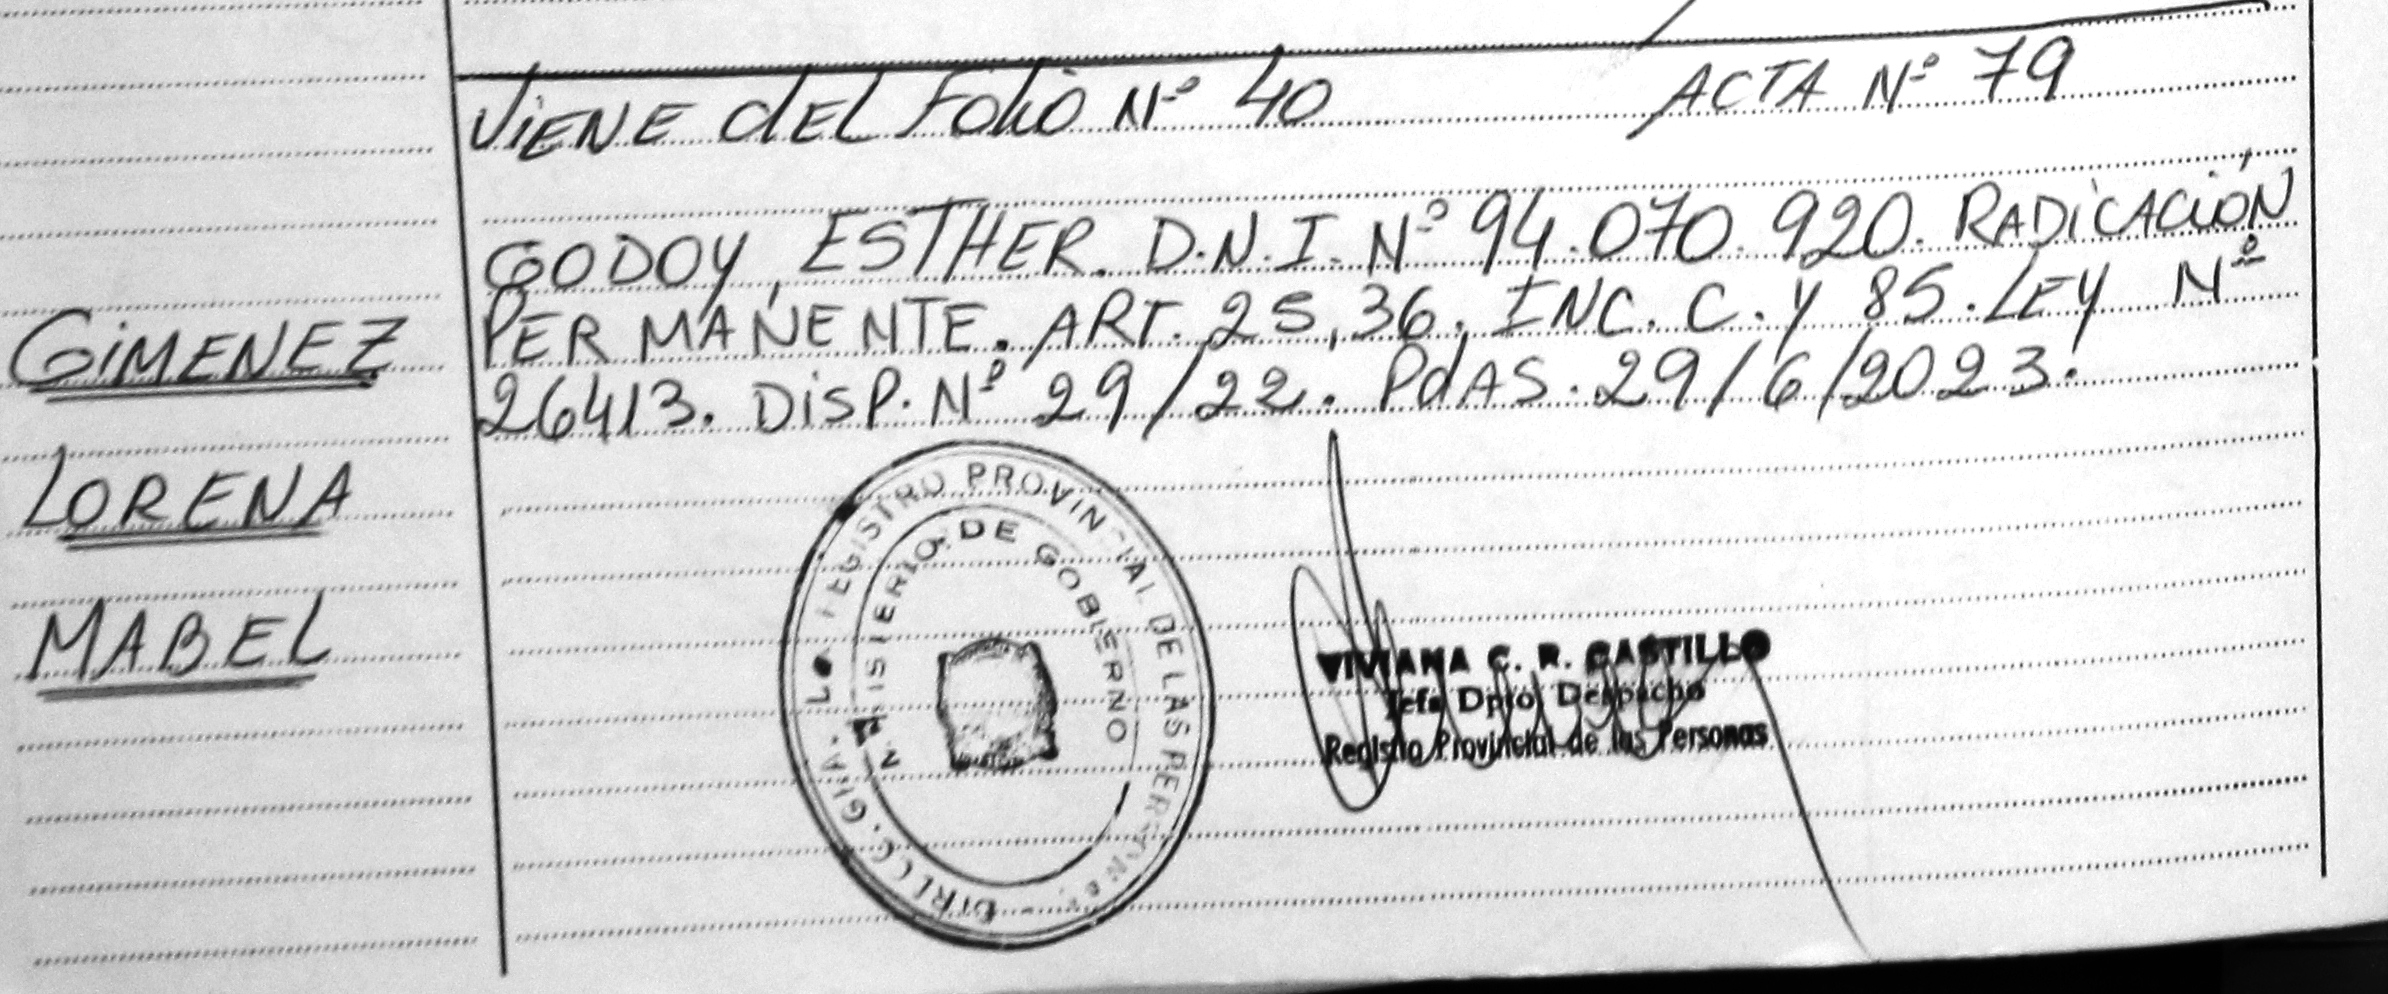 VIENE dEL Folio Nº 40 ACTA Nº 79
GODOY, ESTHER. D.N.I. Nº 94.070.920. RADICACIÓN
PERMANENTE. ART. 25, 36, INC. C. Y 85. LEY Nº
26413. DISP. Nº 29/22. PdAS. 29/6/2023.
GIMENEZ
LORENA
MABEL
REGISTRO PROVINCIAL DE LAS PERSONAS
MINISTERIO DE GOBIERNO
VIVIANA C. R. CASTILLO
Jefa Dpto. Despacho
Registro Provincial de las Personas